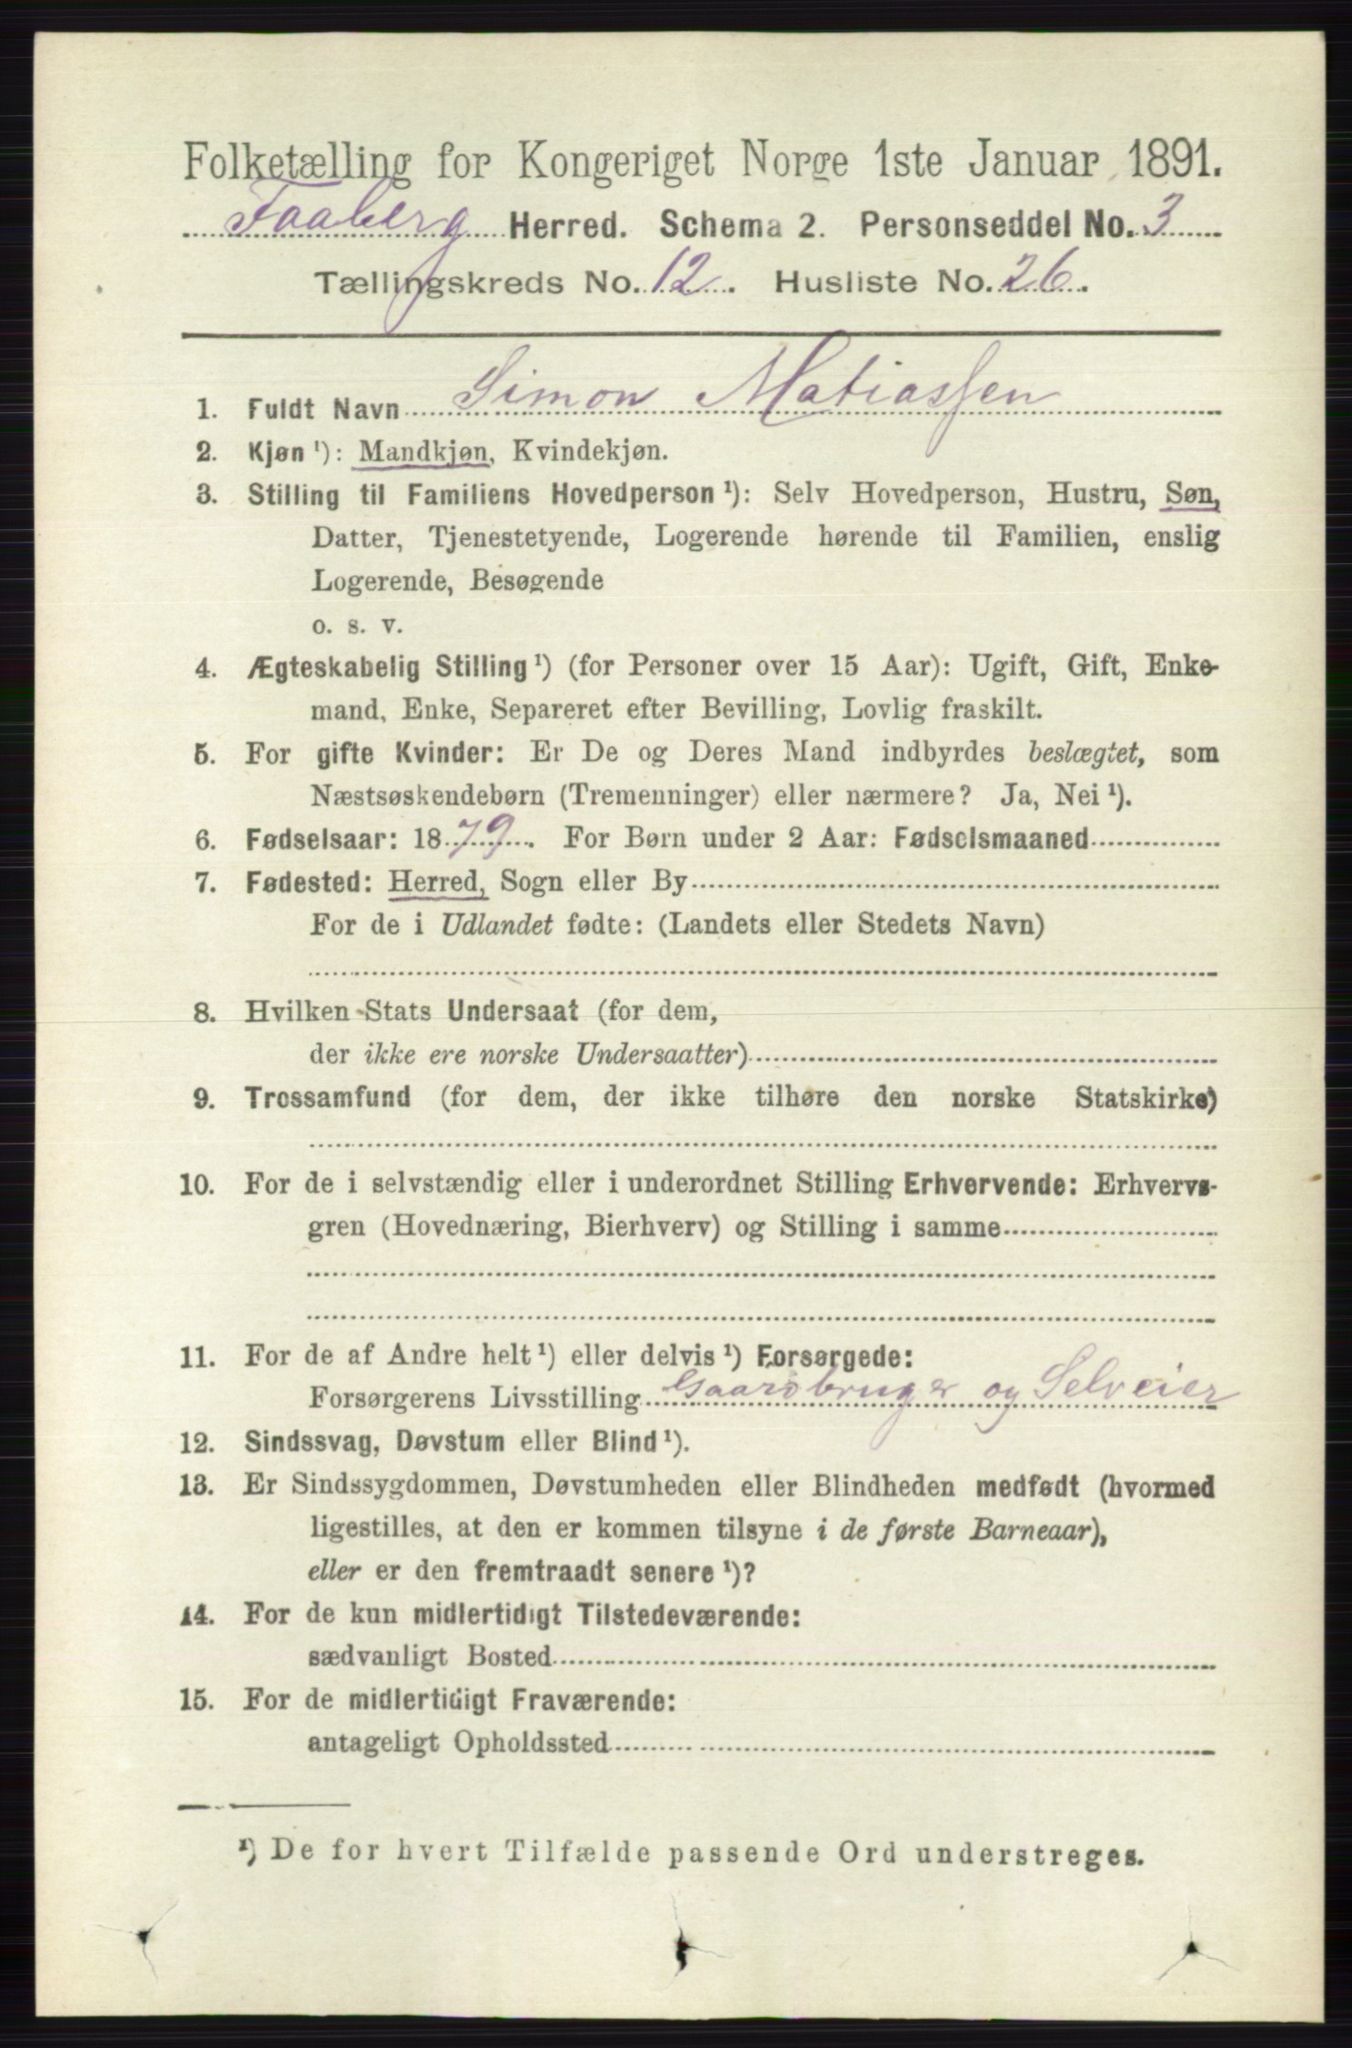 Folketælling for Kongeriget Norge 1ste Januar 1891.
Faaberg Herred. Schema 2. Personseddel No. 3
Tællingskreds No. 12. Husliste No. 26.
1. Fuldt Navn Simon Matiassen
2. Kjøn ¹): Mandkjøn, Kvindekjøn.
3. Stilling til Familiens Hovedperson ¹): Selv Hovedperson, Hustru, Søn,
Datter, Tjenestetyende, Logerende hørende til Familien, enslig
Logerende, Besøgende
o. s. v.
4. Ægteskabelig Stilling ¹) (for Personer over 15 Aar): Ugift, Gift, Enke-
mand, Enke, Separeret efter Bevilling, Lovlig fraskilt.
5. For gifte Kvinder: Er De og Deres Mand indbyrdes beslægtet, som
Næstsøskendebørn (Tremenninger) eller nærmere? Ja, Nei ¹).
6. Fødselsaar: 1879. For Børn under 2 Aar: Fødselsmaaned
7. Fødested: Herred, Sogn eller By
For de i Udlandet fødte: (Landets eller Stedets Navn)
8. Hvilken Stats Undersaat (for dem,
der ikke ere norske Undersaatter)
9. Trossamfund (for dem, der ikke tilhøre den norske Statskirke)
10. For de i selvstændig eller i underordnet Stilling Erhvervende: Erhvervs-
gren (Hovednæring, Bierhverv) og Stilling i samme
11. For de af Andre helt ¹) eller delvis ¹) Forsørgede:
Forsørgerens Livsstilling Gaardbruger og Selveier
12. Sindssvag, Døvstum eller Blind ¹).
13. Er Sindssygdommen, Døvstumheden eller Blindheden medfødt (hvormed
ligestilles, at den er kommen tilsyne i de første Barneaar),
eller er den fremtraadt senere ¹)?
14. For de kun midlertidigt Tilstedeværende:
sædvanligt Bosted
15. For de midlertidigt Fraværende:
antageligt Opholdssted
¹) De for hvert Tilfælde passende Ord understreges.